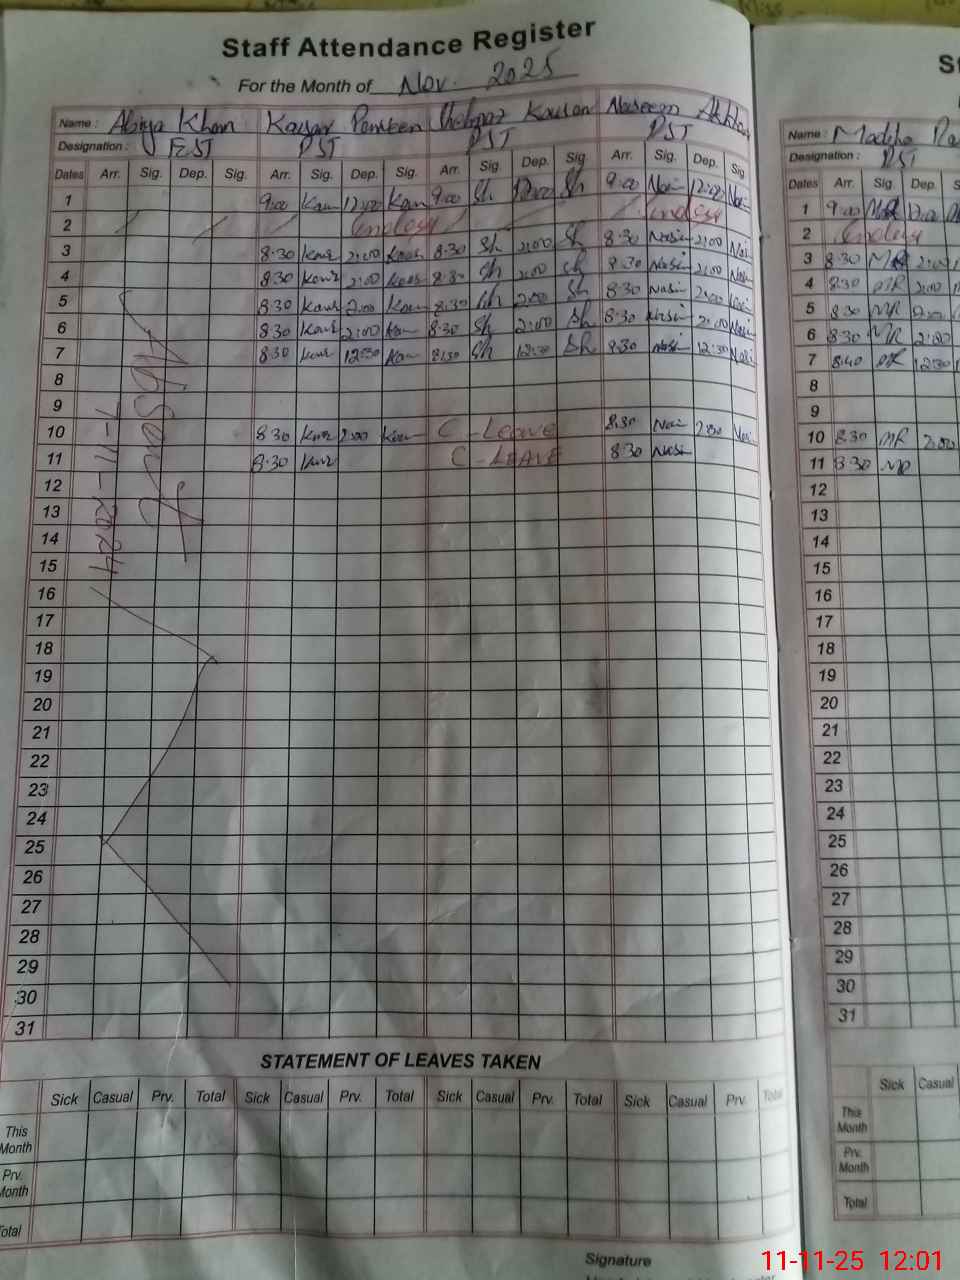 Staff Attendance Register
For the Month of Nov. 2025
Name : Khan Kausar Parveen Kausar Naseem Akhtar
Designation : EST PST PST PST
Dates Arr. Sig. Dep. Sig. Arr. Sig. Dep. Sig. Arr. Sig. Dep. Sig. Arr. Sig. Dep. Sig
1 9:00 Kau 12:00 Kau 9:00 Sh 12:00 Sh 9:00 Nasi 12:00 Nasi
2 Sunday Sunday
3 8:30 Kausr 2:00 Kaus 8:30 Sh 2:00 Sh 8:30 Nasi 2:00 Nasi
4 8:30 Kausr 2:00 Kaus 8:30 Sh 2:00 Sh 8:30 Nasi 2:00 Nasi
5 8:30 Kausr 2:00 Kau 8:30 Sh 2:00 Sh 8:30 Nasi 2:00 Nasi
6 8:30 Kausr 2:00 Kau 8:30 Sh 2:00 Sh 8:30 Nasi 2:00 Nasi
7 8:30 Kausr 12:30 Kau 8:30 Sh 12:30 Sh 8:30 Nasi 12:30 Nasi
8
9
10 8:30 Kausr 2:00 Kau C-Leave 8:30 Nasi 2:00 Nasi
11 8:30 Kausr C-LEAVE 8:30 Nasi
12
13
14
15
16
17
18
19
20
21
22
23
24
25
26
27
28
29
30
31
Absent
7-11-2024
STATEMENT OF LEAVES TAKEN
Sick Casual Prv. Total Sick Casual Prv. Total Sick Casual Prv. Total Sick Casual Prv. Total
This Month
Prv. Month
Total
Signature
St
Name : Madeha
Designation : PST
Dates Arr. Sig. Dep. S
1 9:00 MR 12:00
2 Sunday
3 8:30 MR 2:00
4 8:30 MR 2:00
5 8:30 MR 2:00
6 8:30 MR 2:00
7 8:40 MR 12:30
8
9
10 8:30 MR 2:00
11 8:30 MR
12
13
14
15
16
17
18
19
20
21
22
23
24
25
26
27
28
29
30
31
Sick Casual
This Month
Prv. Month
Total
11-11-25 12:01